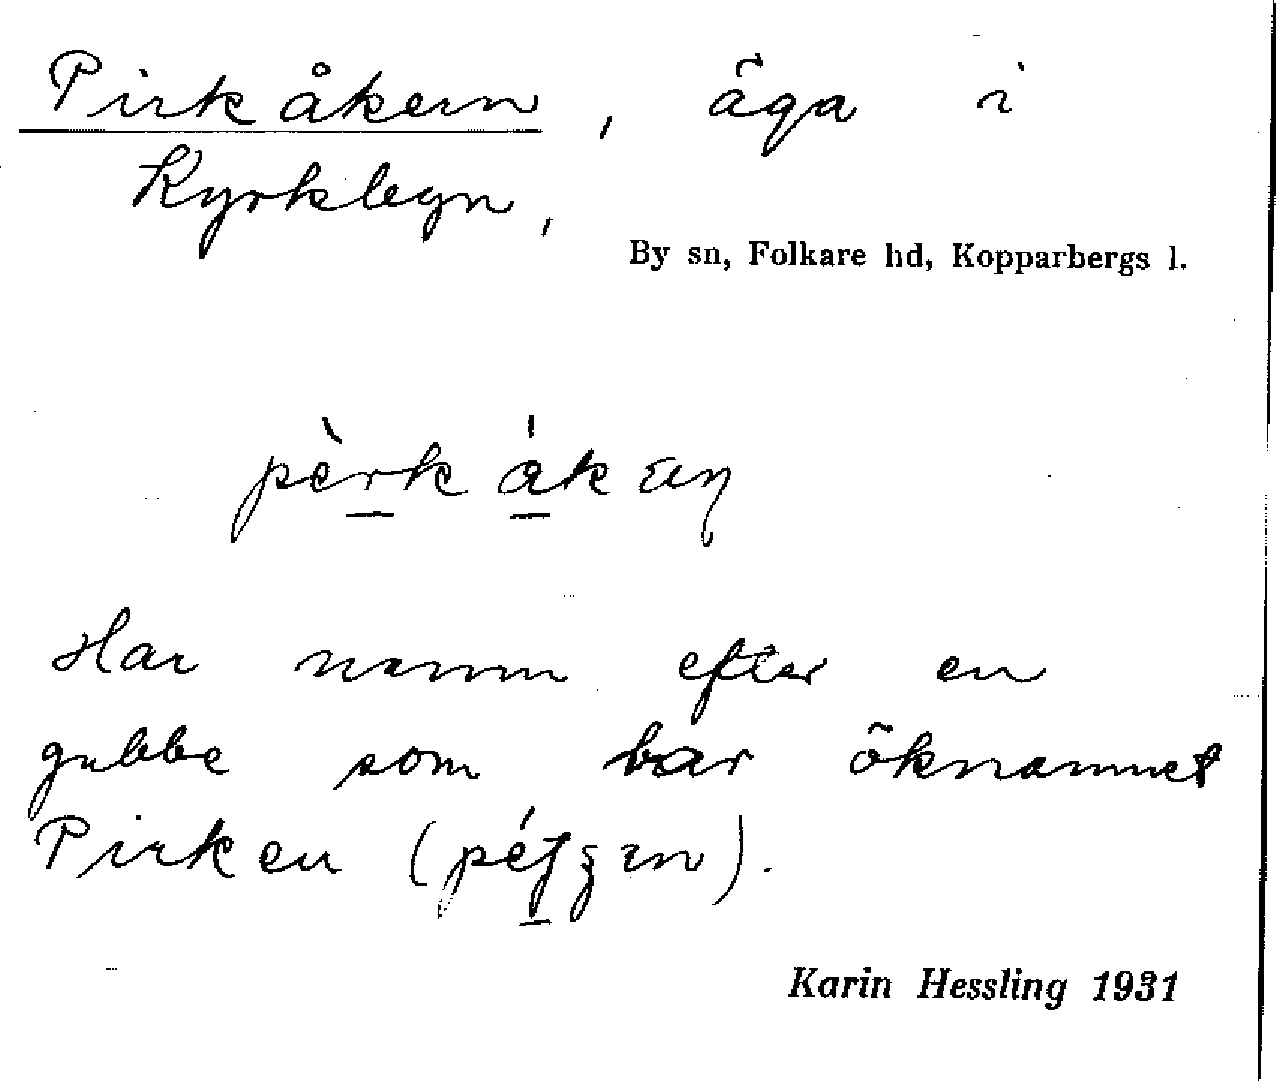 Pirkåkern, äga i
Kyrkbyn,
By sn, Folkare hd, Kopparbergs l.
Har namn efter en
gubbe som bar öknamnet
Pirken
Karin Hessling 1931